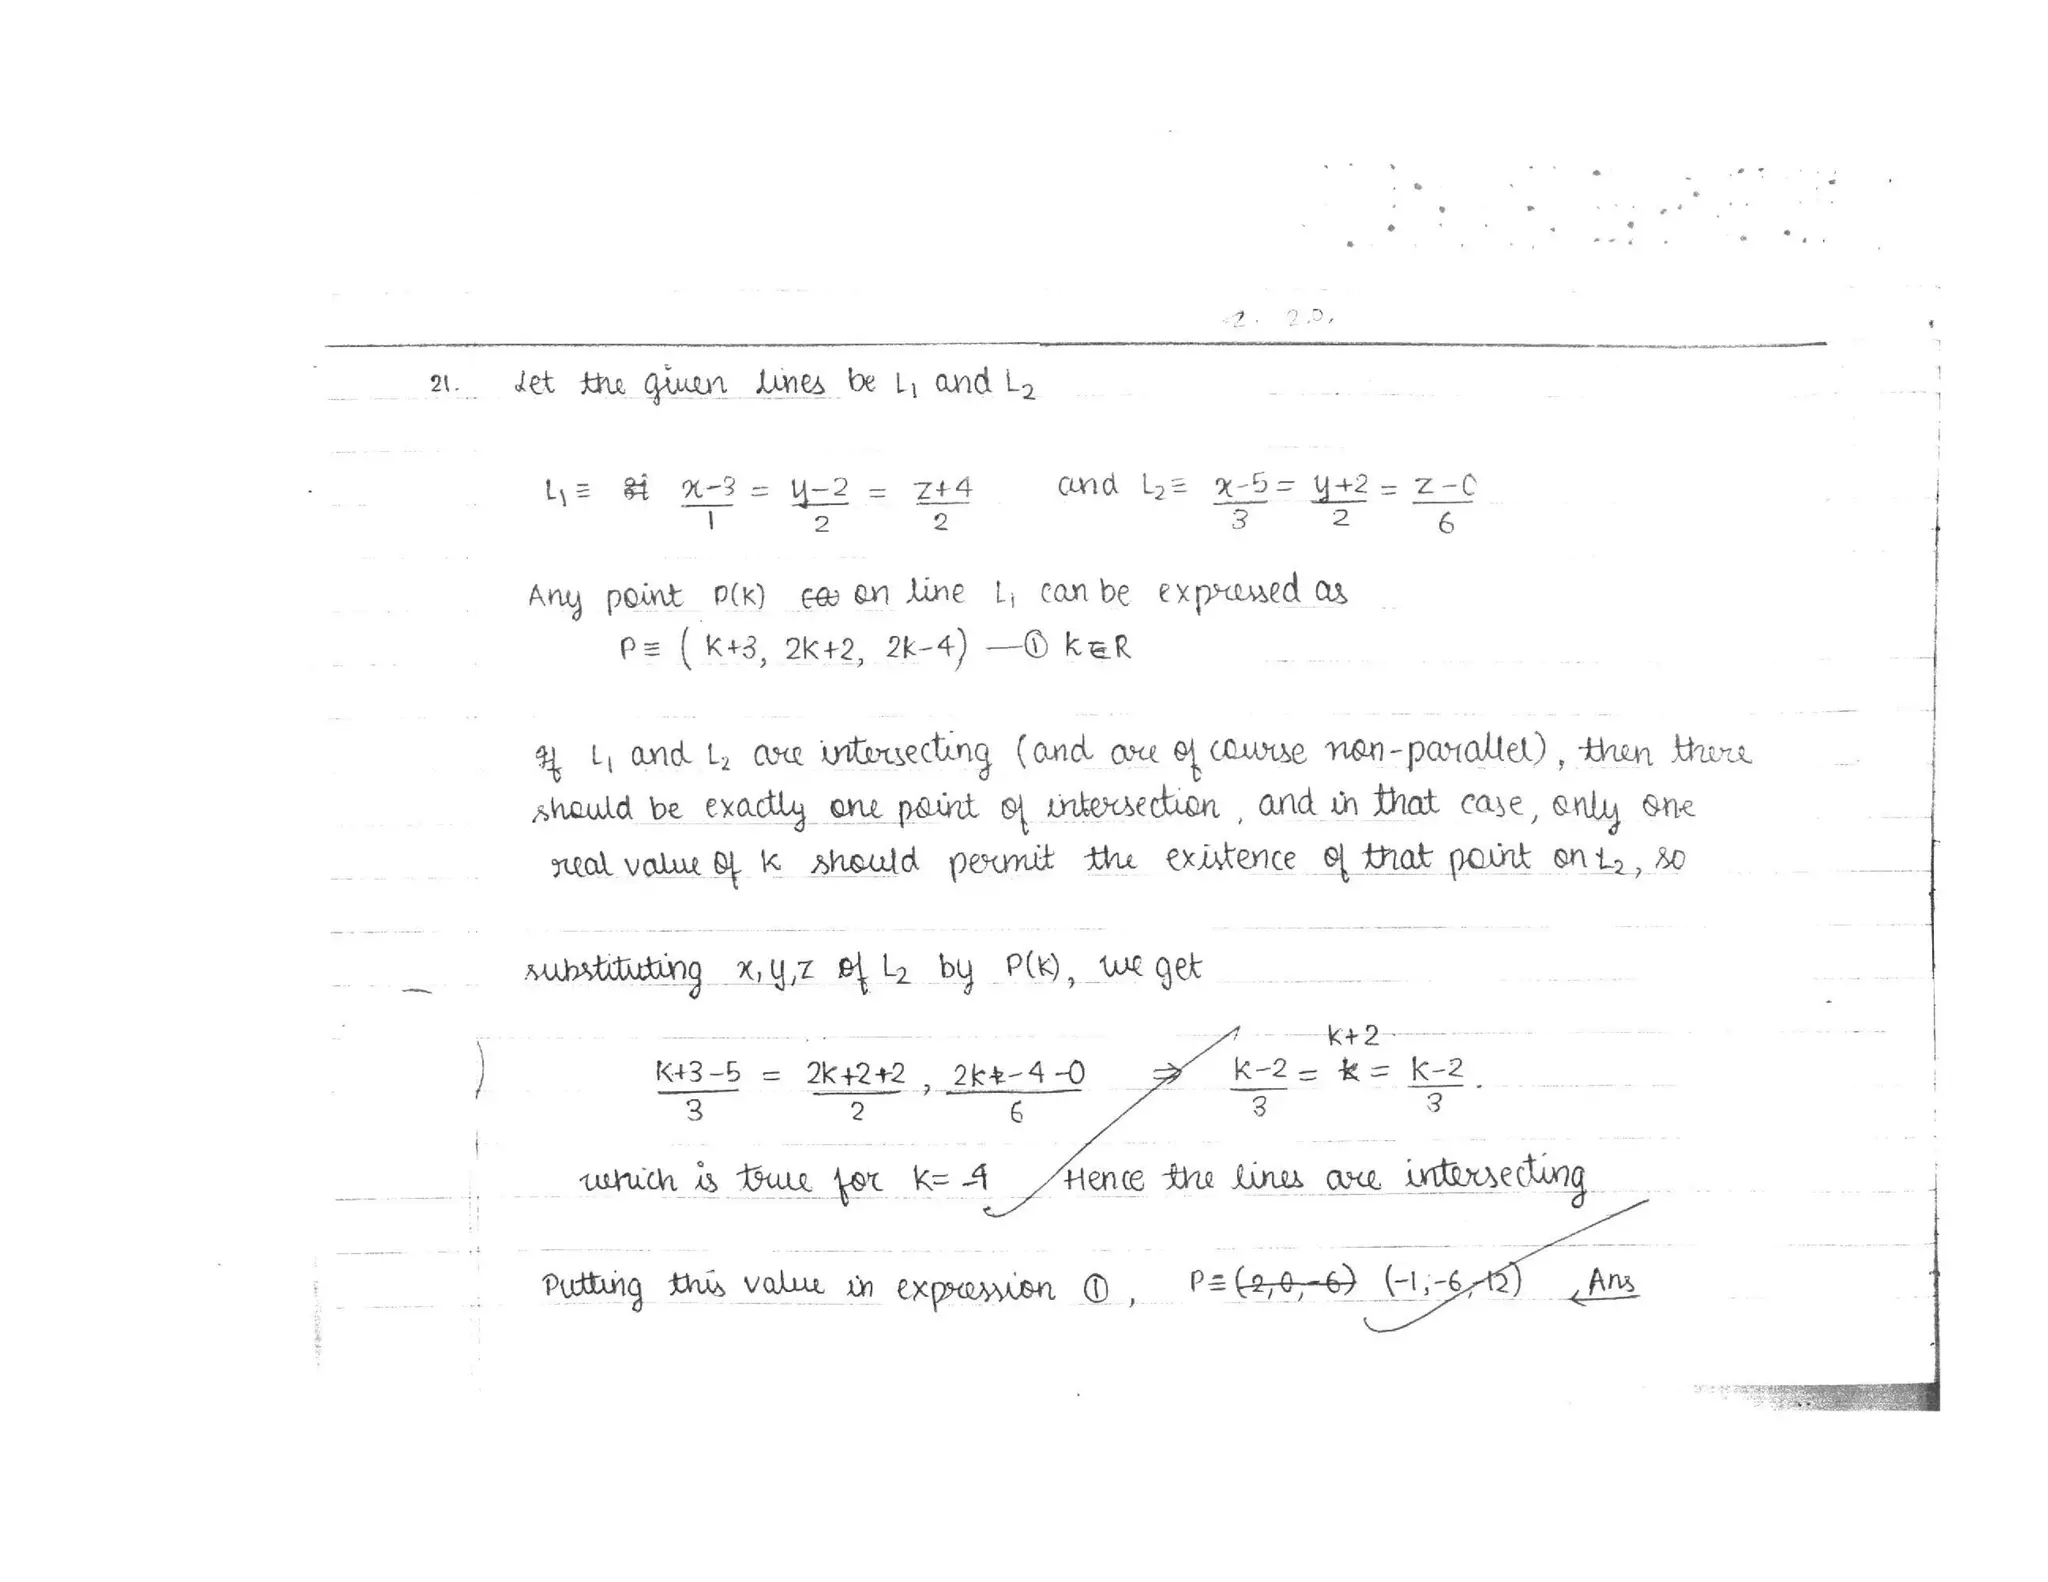 21. Let the given lines be L₁ and L₂
L₁ ≡ x-3/1 = y-2/2 = z+4/2 and L₂ ≡ x-5/3 = y+2/2 = z-0/6
Any point P(K) on line L₁ can be expressed as
P ≡ ( K+3, 2K+2, 2K-4) —① K∈R
If L₁ and L₂ are intersecting (and are of course non-parallel), then there
should be exactly one point of intersection, and in that case, only one
real value of K should permit the existence of that point on L₂, so
substituting x, y, z of L₂ by P(K), we get
K+3-5/3 = 2K+2+2/2, 2K-4-0/6 ⇒ K-2/3 = K+2 = K-2/3.
which is true for K= -4 Hence the lines are intersecting
Putting this value in expression ①, P ≡ (-2,0,-6) (-1,-6,-12) Ans